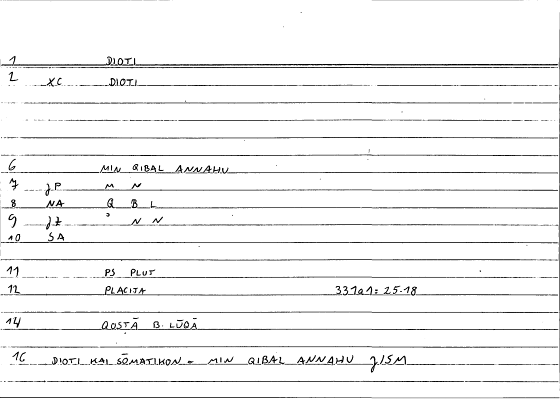 1 DIOTI
2 XC DIOTI
6 MIN QIBAL ANNAHU
7 JP M N
8 NA Q B L
9 JZ ʾ N N
10 SA
11 PS PLUT
12 PLACITA 331a1: 25.18
14 QOSTĀ B. LŪQĀ
16 DIOTI KAI SŌMATIKON = MIN QIBAL ANNAHU JISM